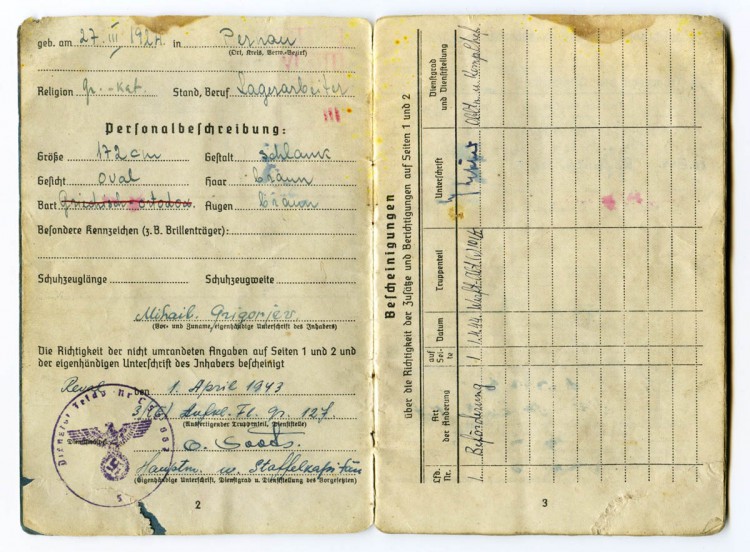 geb. am 27. III 1924 in Pernau
(Ort, Kreis, Verw.-Bezirk)
Religion gr.-kat. Stand, Beruf Lagerarbeiter
III
Personalbeschreibung:
Größe 172 cm Gestalt schlank
Gesicht oval Haar braun
Bart Augen braun
Besondere Kennzeichen (z. B. Brillenträger):
Schuhzeuglänge Schuhzeugweite
Mihail. Grigorjev.
(Vor- und Zuname, eigenhändige Unterschrift des Inhabers)
Die Richtigkeit der nicht umrandeten Angaben auf Seiten 1 und 2 und
der eigenhändigen Unterschrift des Inhabers bescheinigt
Reval den 1. April 1943
Gr. 127
(Ausfertigender Truppenteil, Dienststelle)
Hauptm. u. Staffelkapitän
(Eigenhändige Unterschrift, Dienstgrad u. Dienststellung des Vorgesetzten)
Dienststelle Feldp. Nr.
2
Bescheinigungen
über die Richtigkeit der Zusätze und Berichtigungen auf Seiten 1 und 2
Lfd. Nr.
Art der Änderung
auf Seite
Datum
Truppenteil
Unterschrift
Dienstgrad und Dienststellung
1. Beförderung 1
3